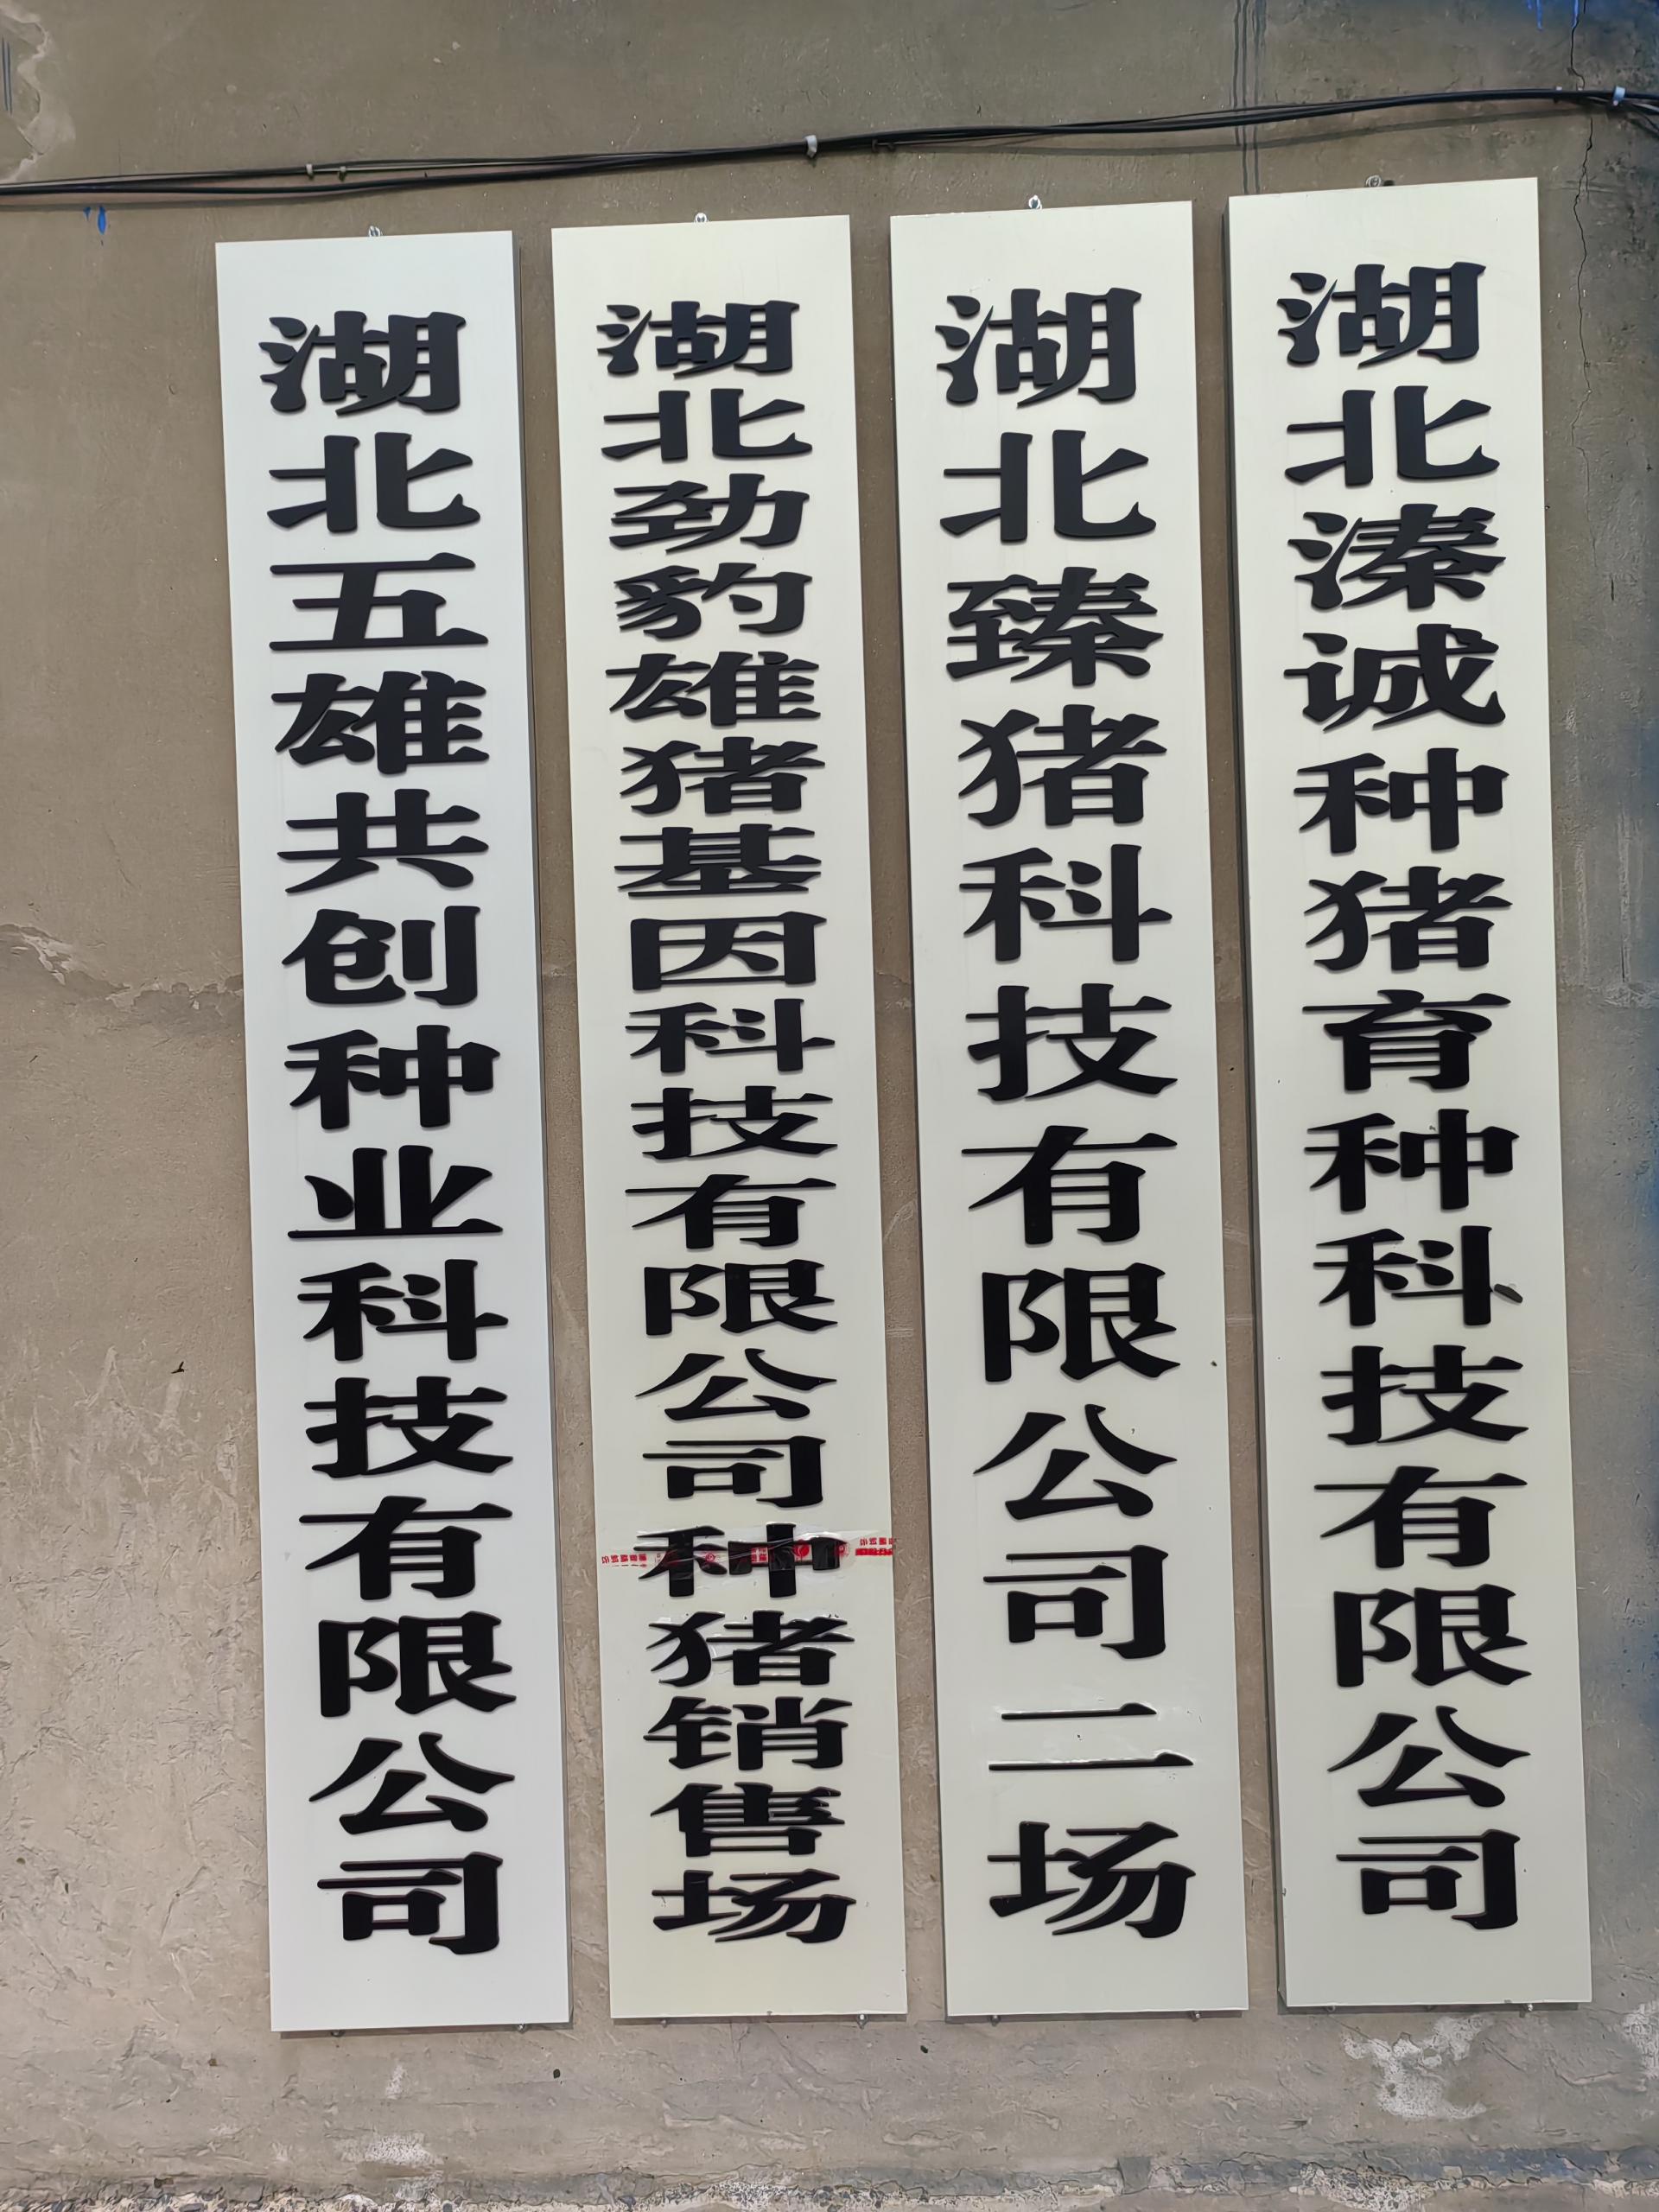 湖北五雄共创种业科技有限公司
湖北劲豹雄猪基因科技有限公司种猪销售场
湖北臻猪科技有限公司二场
湖北溱诚种猪育种科技有限公司